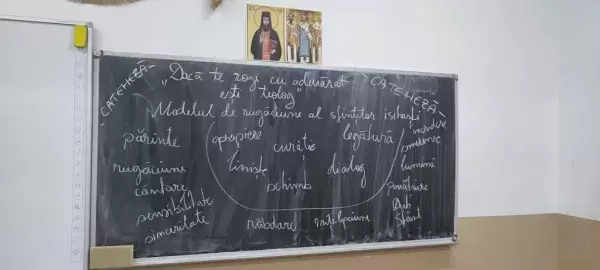 - CATEHEZĂ -
"Dacă te rogi cu adevărat
ești teolog"
- CATEHEZĂ -
Modelul de rugăciune al sfinților isihaști
părinte
rugăciune
cântare
sensibilitate
sinceritate
apropiere
curăție
legătură
liniște
dialog
schimb
răbdare
înțelepciune
încredere
smerenie
lumină
Duh
Sfânt